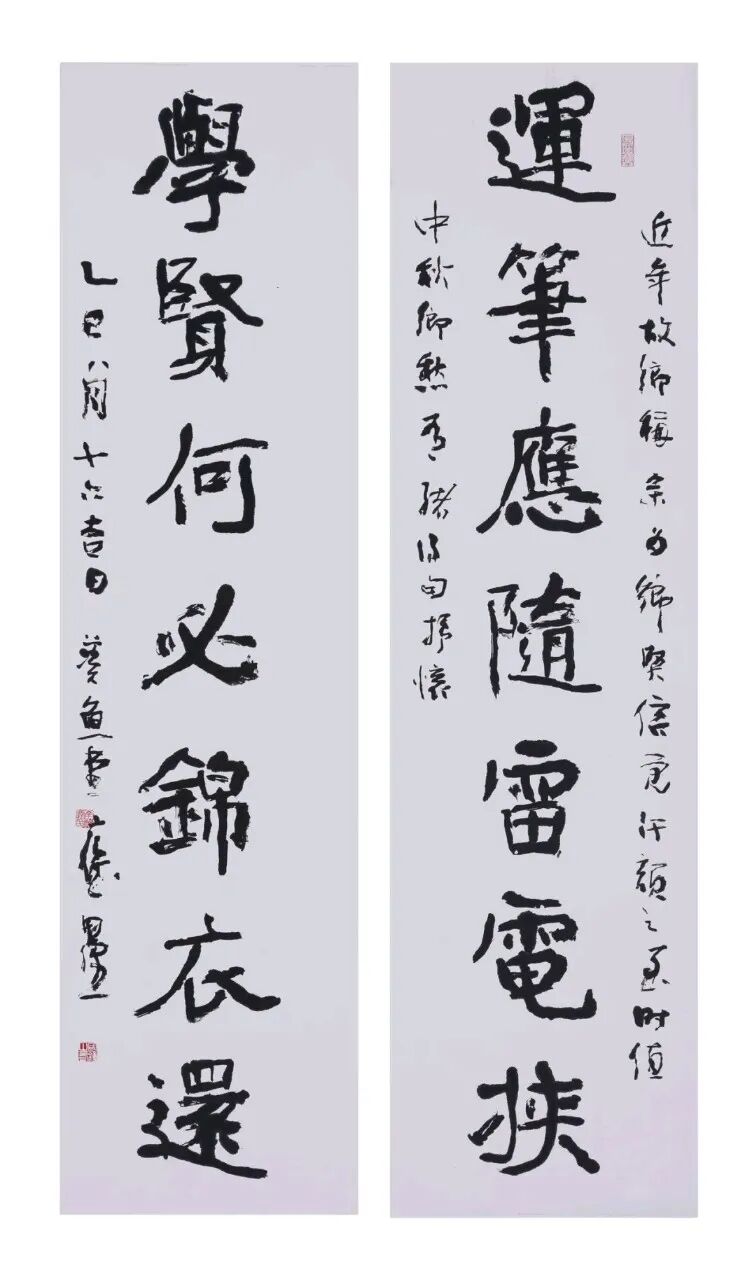 運筆應隨雷電挾
近年故鄉稱宗為鄉賢信覺汗顏之至時值
中秋鄉愁有緒得句抒懷
學賢何必錦衣還
乙巳八月十六吉日